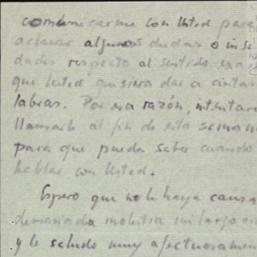 comunicarme con Usted para
aclarar algunas dudas o inse
dades respecto al sentido exac
que Usted quisiera dar a ciertas
labras. Por esa razón, intentaré
llamarle al fin de esta semana
para que pueda saber cuando
hablar con Usted.
Espero que no le haya causa
demasiada molestia mi largo
y le saludo muy afectuosamen